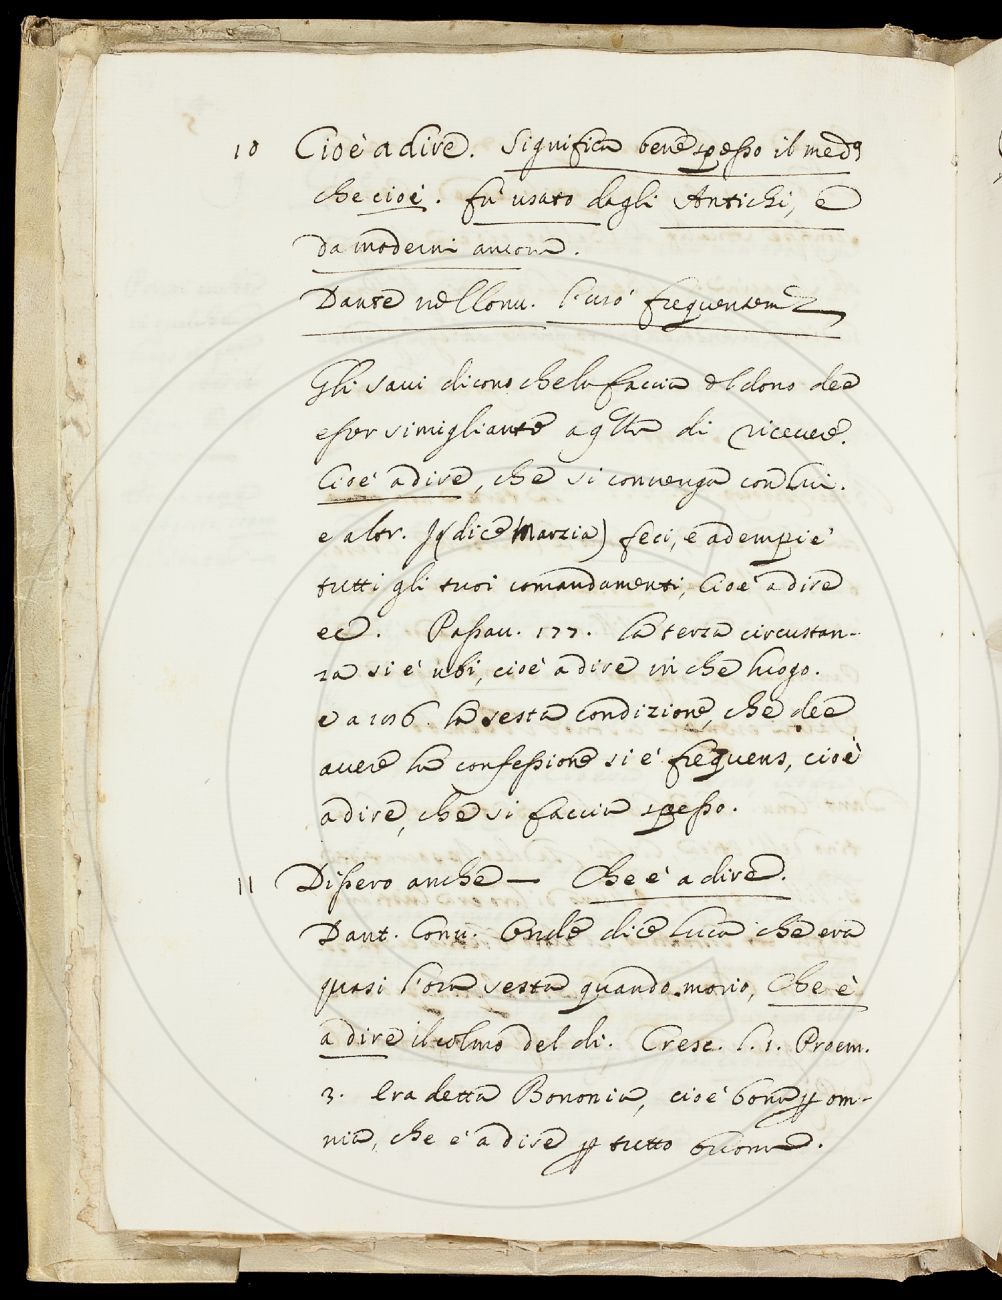 10 Cioè a dire. Significa bene spesso il med.º
che cioè. fu usato dagli Antichi, e
da moderni ancora.
Dante nel Conu. l'usò frequentem.
Gli saui dicono che la faccia del dono dee
esser simigliante a qlla di riceuere.
Cioè a dire, che si conuenga con lui.
e altr. Io (dice Marzia) feci, e adempiè
tutti gli tuoi comandamenti, Cioè a dire
ec. Passau. 177. la terza circustan-
za si è ubi, cioè a dire in che luogo.
e a 106. la sesta condizione, che dee
auere la confessione si è frequens, cioè
a dire, che si faccia spesso.
11 Dissero anche — Che è a dire.
Dant. Conu. Onde dice Luca che era
quasi l'ora sesta quando morio, Che è
a dire il colmo del dì. Cresc. l. 1. Proem.
3. Era detta Bononia, cioè bona p om-
nia, che è a dire p tutto buona.